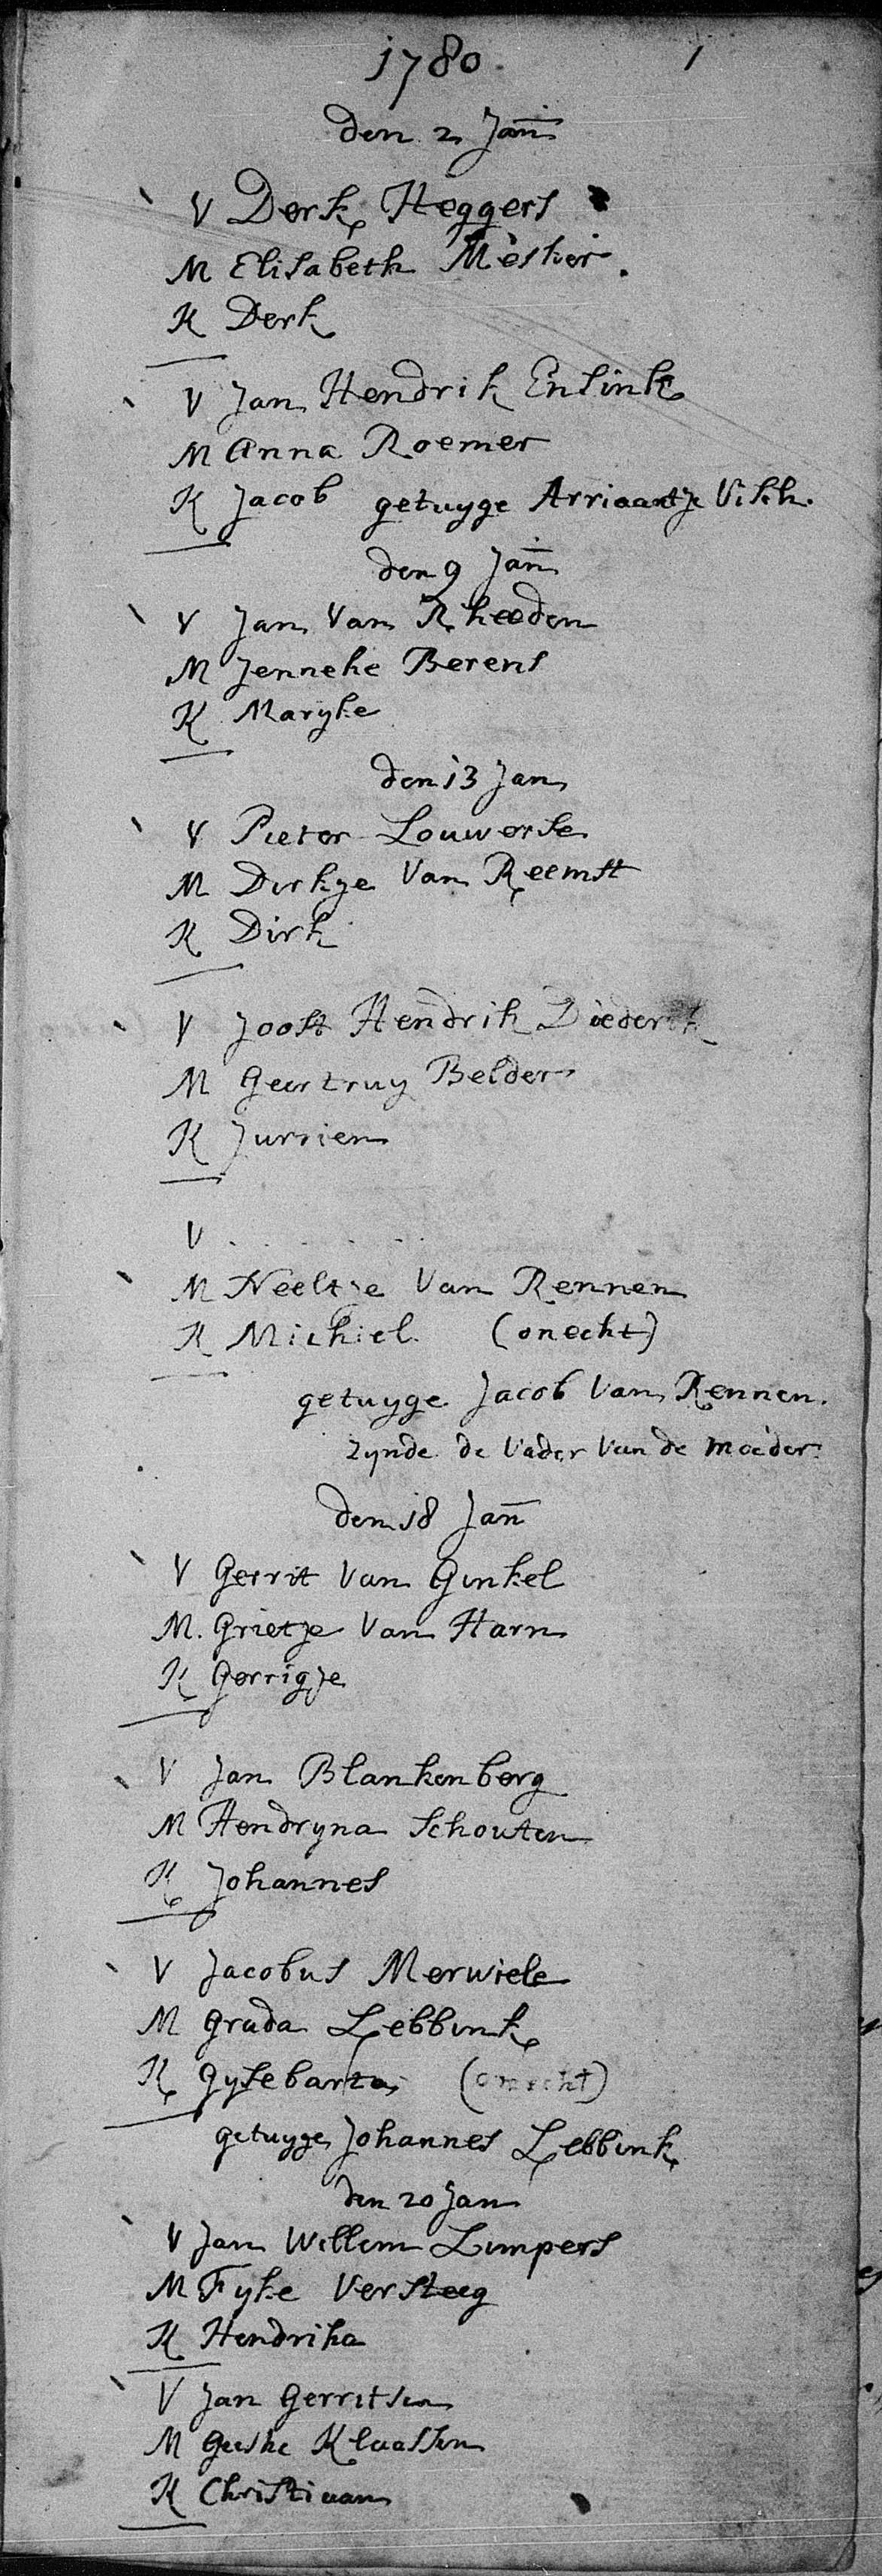 1780. 1
den 2 Jan
V Derk Heggers
M Elisabeth Mesker.
K Derk
V Jan Hendrik Ensink
M Anna Roemer
K Jacob getuyge Arriaantje Visch.
den 9 Jan
V Jan Van Rheeden
M Jenneke Berens
K Maryke
den 13 Jan
V Pieter Louwerse
M Dirkje Van Reemst
K Dirk
V Joost Hendrik Diederik
M Geertruy Belder
K Jurrien
V . . . . .
M Neeltje Van Rennen
K Michiel. (onecht)
getuyge Jacob Van Rennen.
zynde de Vader Van de Moeder.
den 18 Jan
V Gerrit Van Ginkel
M. Grietje Van Harn
K Gerrigje
V Jan Blankenberg
M Hendryna Schouten
K Johannes
V Jacobus Merwiele
M Grada Lebbink
K Gysebarta (onecht)
getuyge Johannes Lebbink
den 20 Jan
V Jan Willem Limpers
M Fyke Versteeg
K Hendrika
V Jan Gerritsen
M Geeske Klaassen
K Christiaan